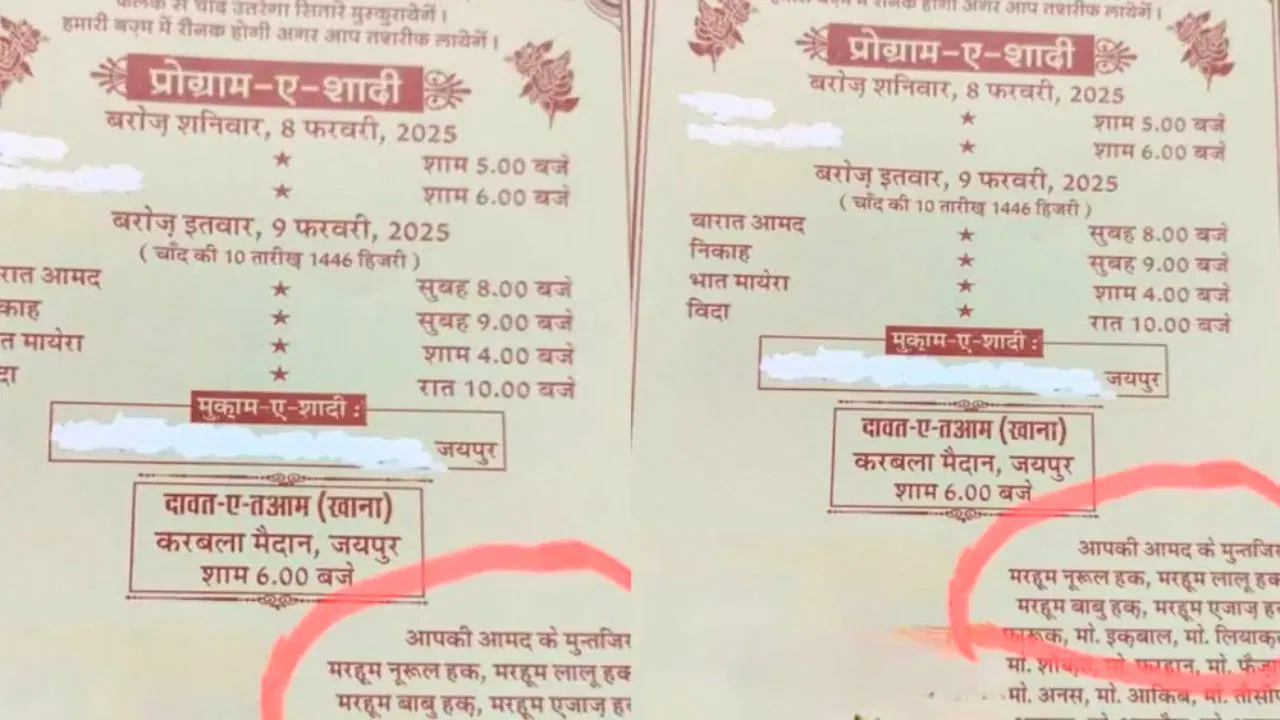 फलक से चाँद उतरेगा सितारे मुस्कुरायेगें।
हमारी बज़्म में रौनक होगी अगर आप तशरीफ लायेगें।
प्रोग्राम-ए-शादी
बरोज़ शनिवार, 8 फरवरी, 2025
शाम 5.00 बजे
शाम 6.00 बजे
बरोज़ इतवार, 9 फरवरी, 2025
( चाँद की 10 तारीख़ 1446 हिजरी )
रात आमद ★ सुबह 8.00 बजे
काह ★ सुबह 9.00 बजे
त मायेरा ★ शाम 4.00 बजे
दा ★ रात 10.00 बजे
मुक़ाम-ए-शादी :
जयपुर
दावत-ए-तआम (खाना)
करबला मैदान, जयपुर
शाम 6.00 बजे
आपकी आमद के मुन्तजिर
मरहूम नूरूल हक, मरहूम लालू हक
मरहूम बाबु हक़, मरहूम एजाज़ ह
हमारी बज़्म में रौनक होगी अगर आप तशरीफ लायेगें।
प्रोग्राम-ए-शादी
बरोज़ शनिवार, 8 फरवरी, 2025
★ शाम 5.00 बजे
★ शाम 6.00 बजे
बरोज़ इतवार, 9 फरवरी, 2025
( चाँद की 10 तारीख़ 1446 हिजरी )
बारात आमद ★ सुबह 8.00 बजे
निकाह ★ सुबह 9.00 बजे
भात मायेरा ★ शाम 4.00 बजे
विदा ★ रात 10.00 बजे
मुक़ाम-ए-शादी :
जयपुर
दावत-ए-तआम (खाना)
करबला मैदान, जयपुर
शाम 6.00 बजे
आपकी आमद के मुन्तजिर
मरहूम नूरूल हक, मरहूम लालू हक
मरहूम बाबु हक़, मरहूम एजाज़ ह
फारूक, मो. इक़बाल, मो. लियाक़
मो. शौकत, मो. फरहान, मो. फैज़ा
मो. अनस, मो. आकिब, मो. तौसी